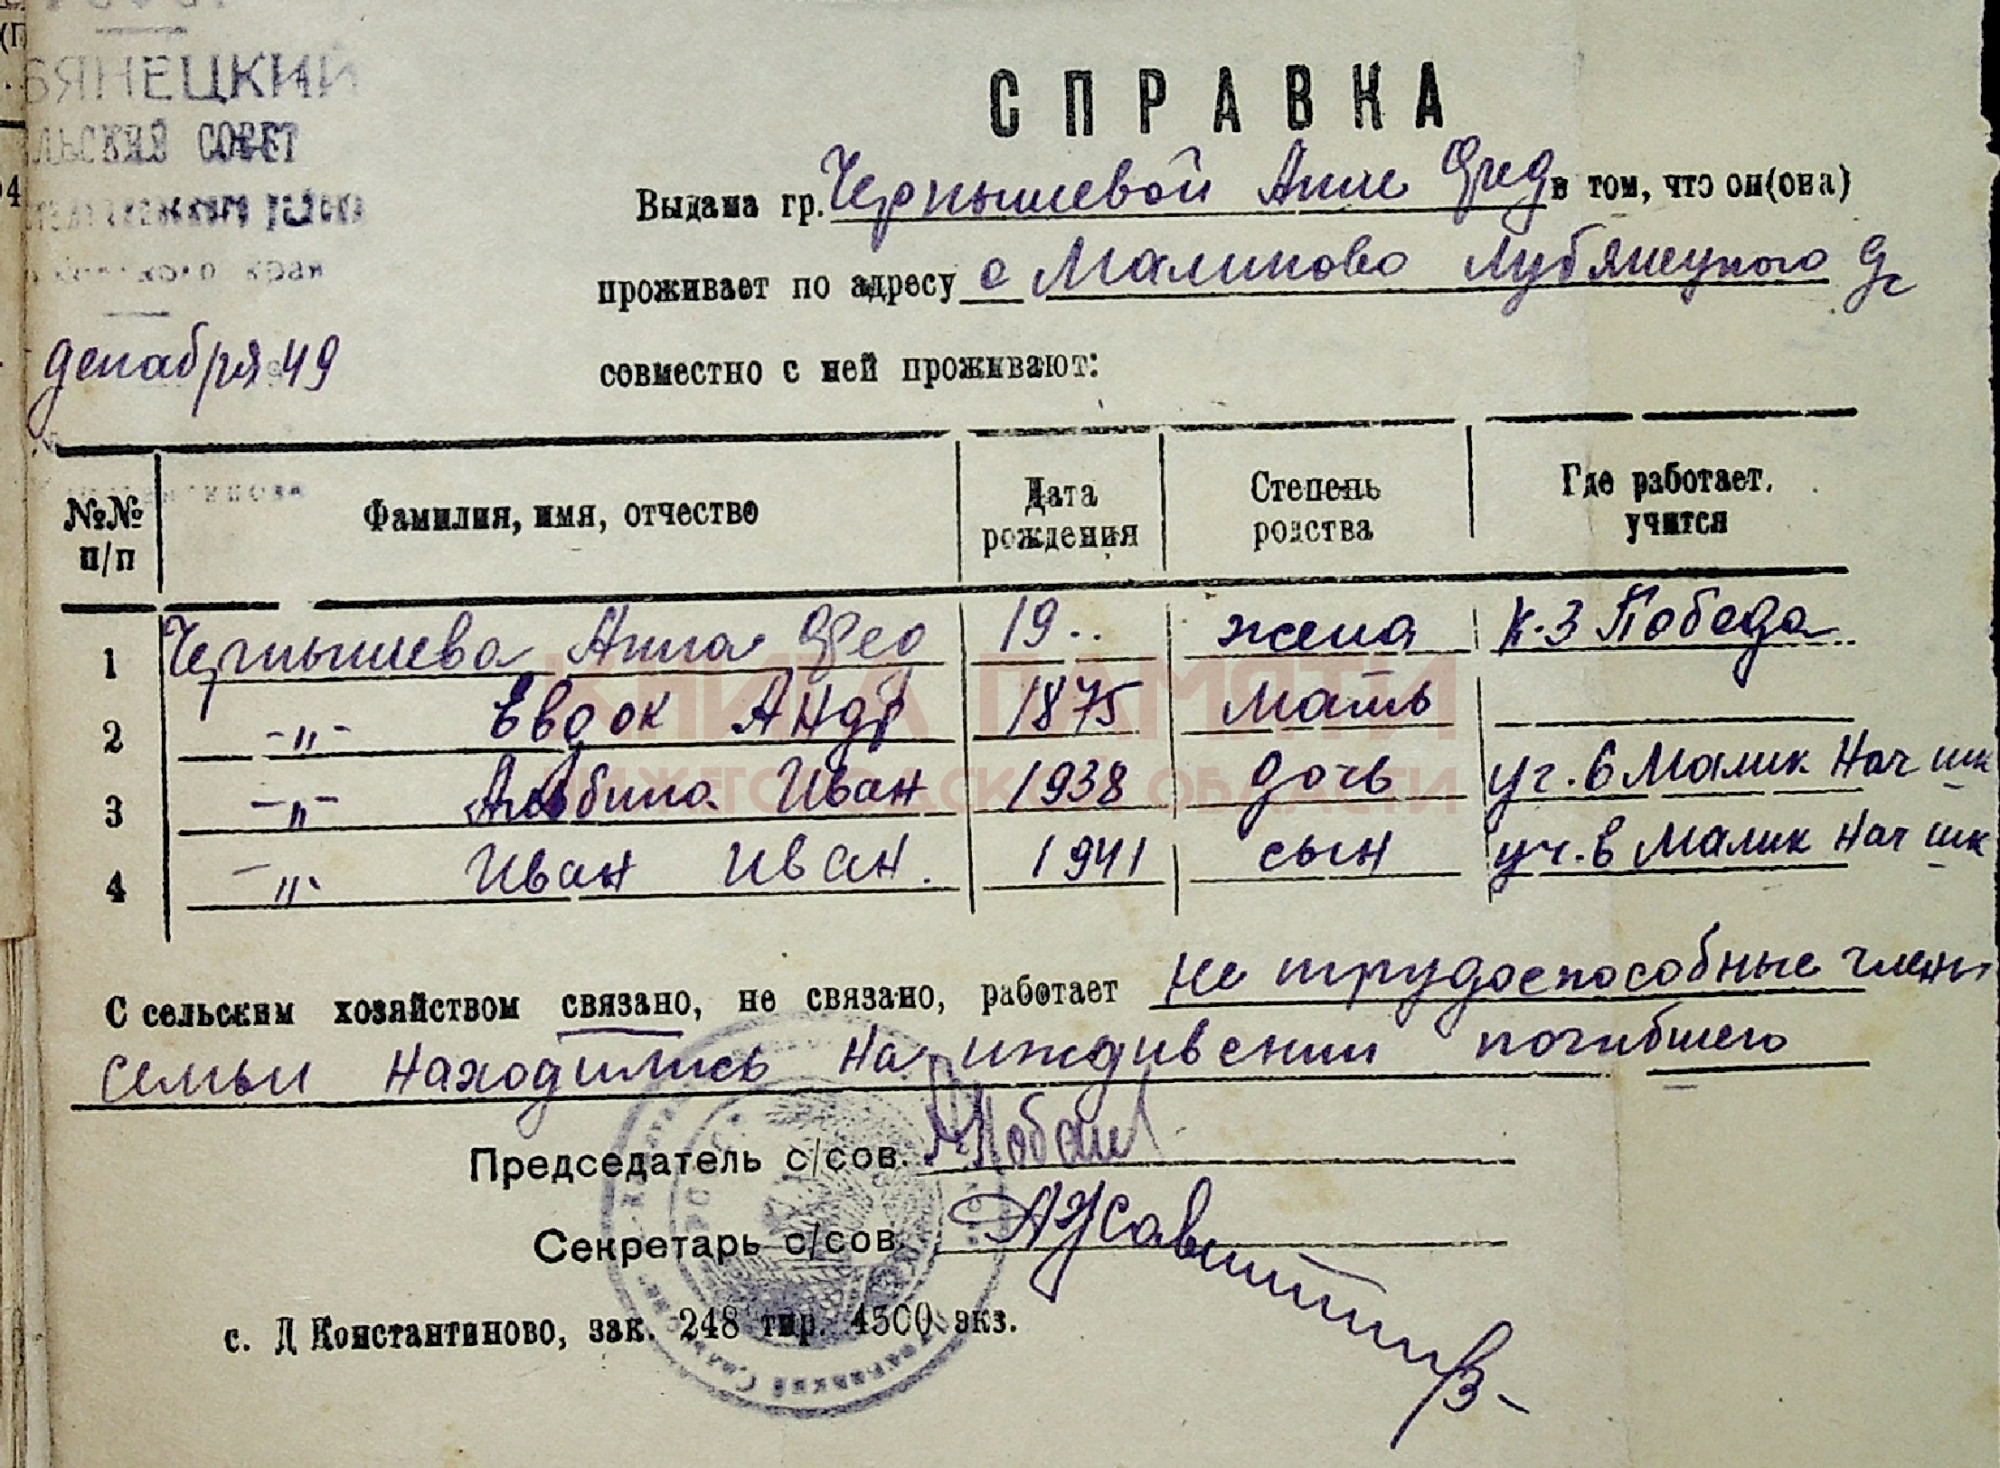 БЯНЕЦКИЙ
ЛЬСКИЙ СОВЕТ
района
края
декабря 49
СПРАВКА
Выдана гр. Чернышевой Анне Фед в том, что он(она)
проживает по адресу с Малиново Лубянецкого
совместно с ней проживают:
№№ п/п
Фамилия, имя, отчество
Дата рождения
Степень родства
Где работает, учится
1 Чернышева Анна Фео 19.. жена к-з Победа
2 -"- Евдок Андр 1875 мать
3 -"- Альбина Иван 1938 дочь уч. в Малин Нач шк
4 -"- Иван Иван. 1941 сын уч. в Малин Нач шк
КНИГА ПАМЯТИ
НИЖЕГОРОДСКОЙ ОБЛАСТИ
С сельским хозяйством связано, не связано, работает не трудоспособные члены
семьи находились на иждивении погибшего
Председатель с/сов.
Секретарь с/сов.
с. Д Константиново, зак. 248 тир. 4500 экз.